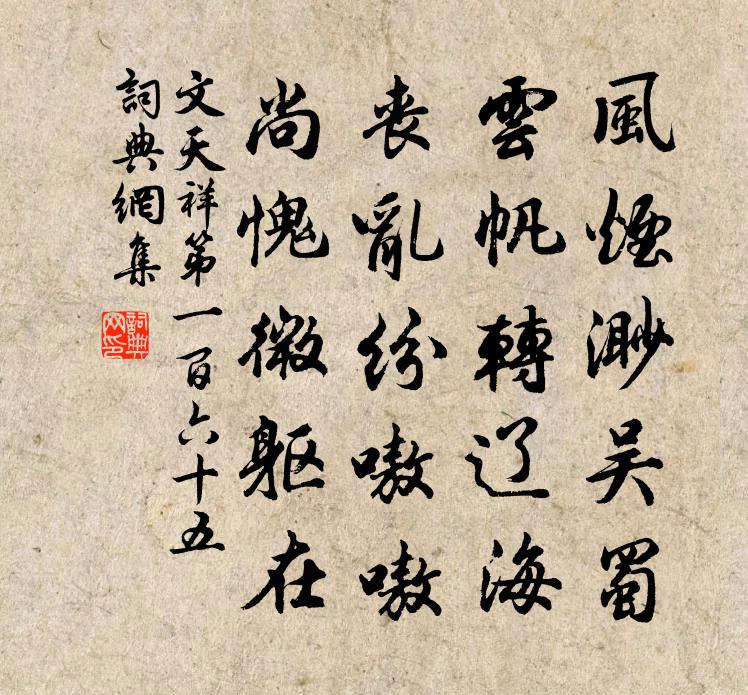 風煙渺吴蜀
雲帆轉辽海
喪亂紛嗷嗷
尚愧微軀在
文天祥第一百六十五
詞典網集
詞典網印